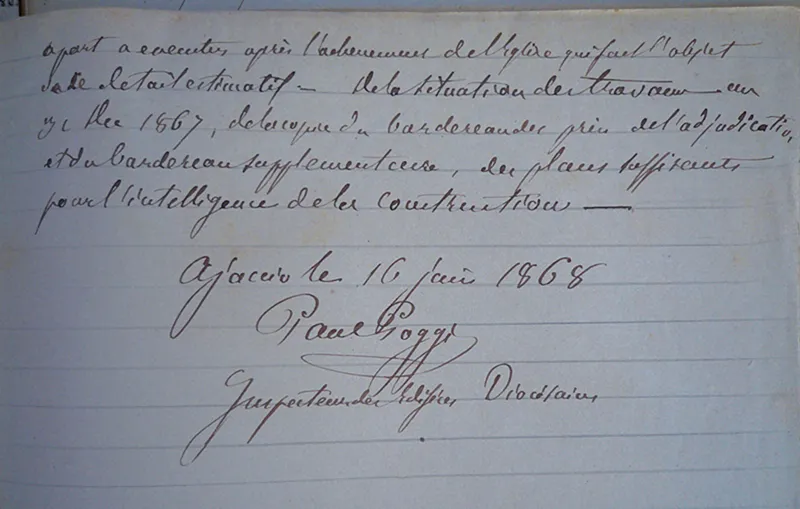 apart a executer après l'achevement de l'Eglise qui fait l'objet
de detail estimatif — de la situation des travaux au
31 Dec 1867, de la copie du bordereau des prix de l'adjudication,
et du bordereau supplementaire, des plans suffisants
pour l'intelligence de la construction —
Ajaccio le 16 juin 1868
Paul Poggi
Inspecteur des Edifices Diocésains